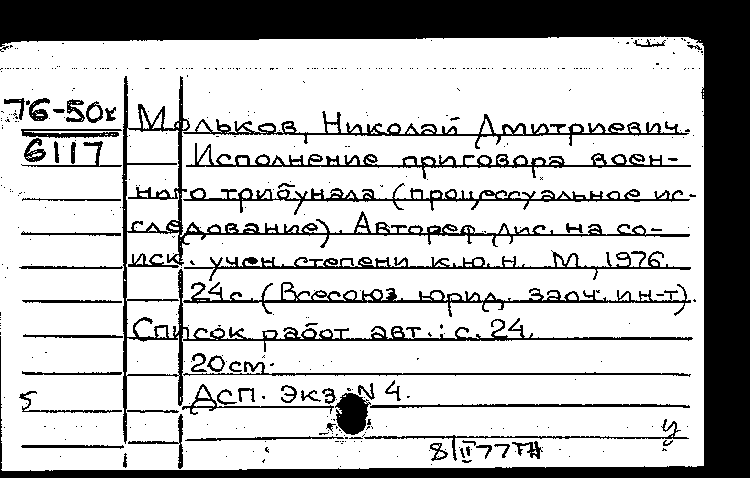 76-50к
6117
Мольков, Николай Дмитриевич.
Исполнение приговора воен-
ного трибунала (процессуальное ис-
следование). Автореф. дис. на со-
иск. учен. степени к.ю.н. М., 1976.
24 с. (Всесоюз. юрид. заоч. ин-т).
Список работ авт.: с. 24.
20 см.
5 ДСП. Экз. N 4.
у
8/II 77